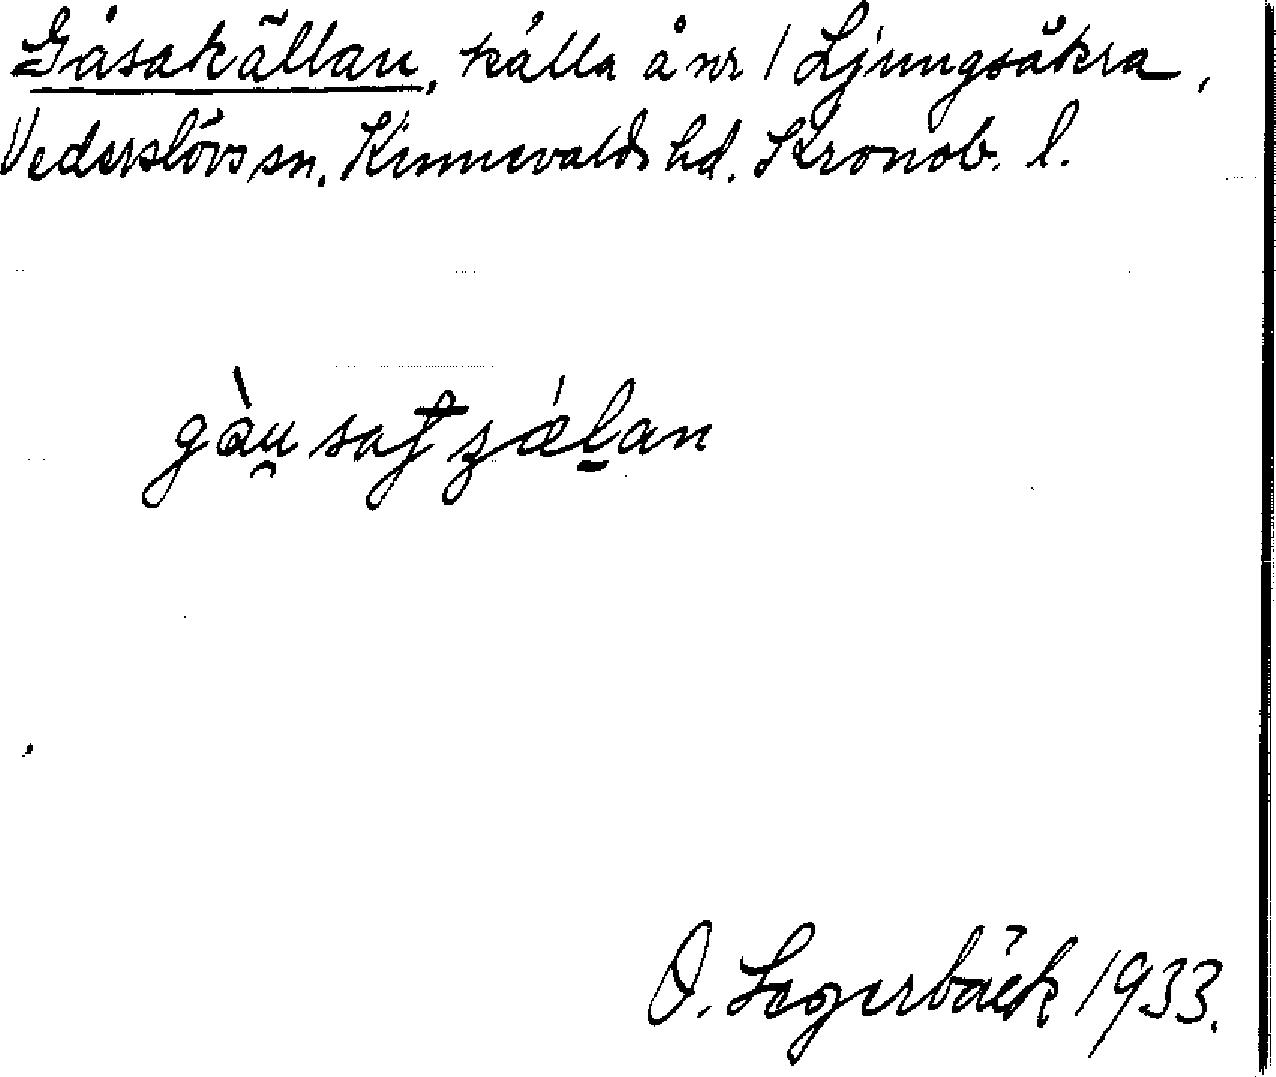 Gåsakällan, källa å nr 1 Ljungsåkra,
Vederslövs sn. Kinnevalds hd. Kronob. l.
gàu̯satʃzǽḻan
O. Lagerbäck 1933.